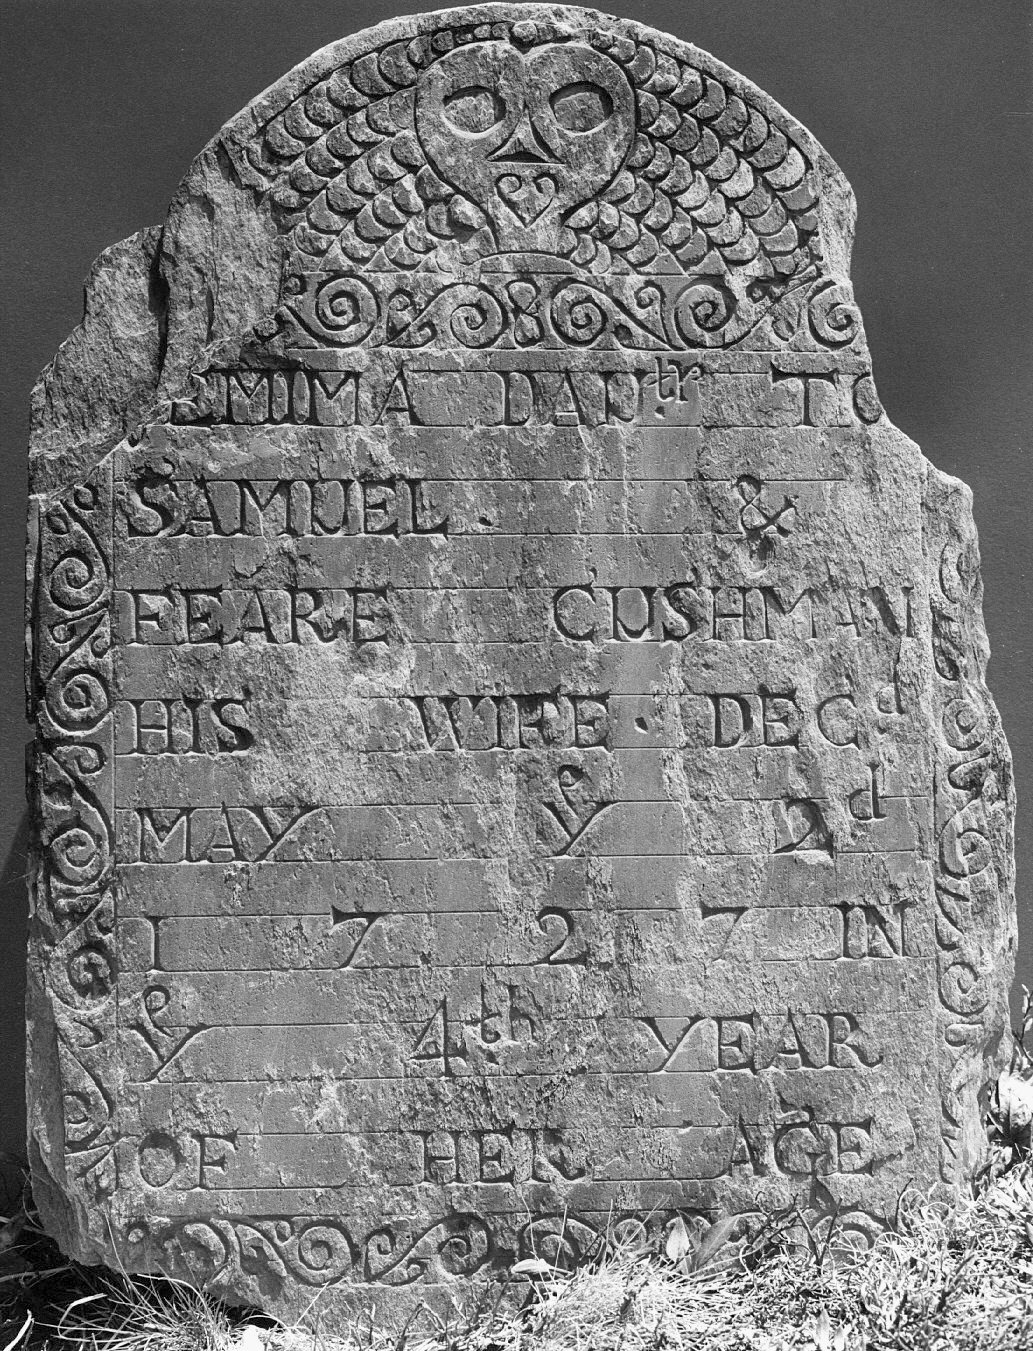 EMMA DAR tr TO
SAMUEL . &
FEARE CUSHMAN
HIS WIFE . DECd
MAY ye 2d
1 7 2 7 IN
ye 4th YEAR
OF HER AGE